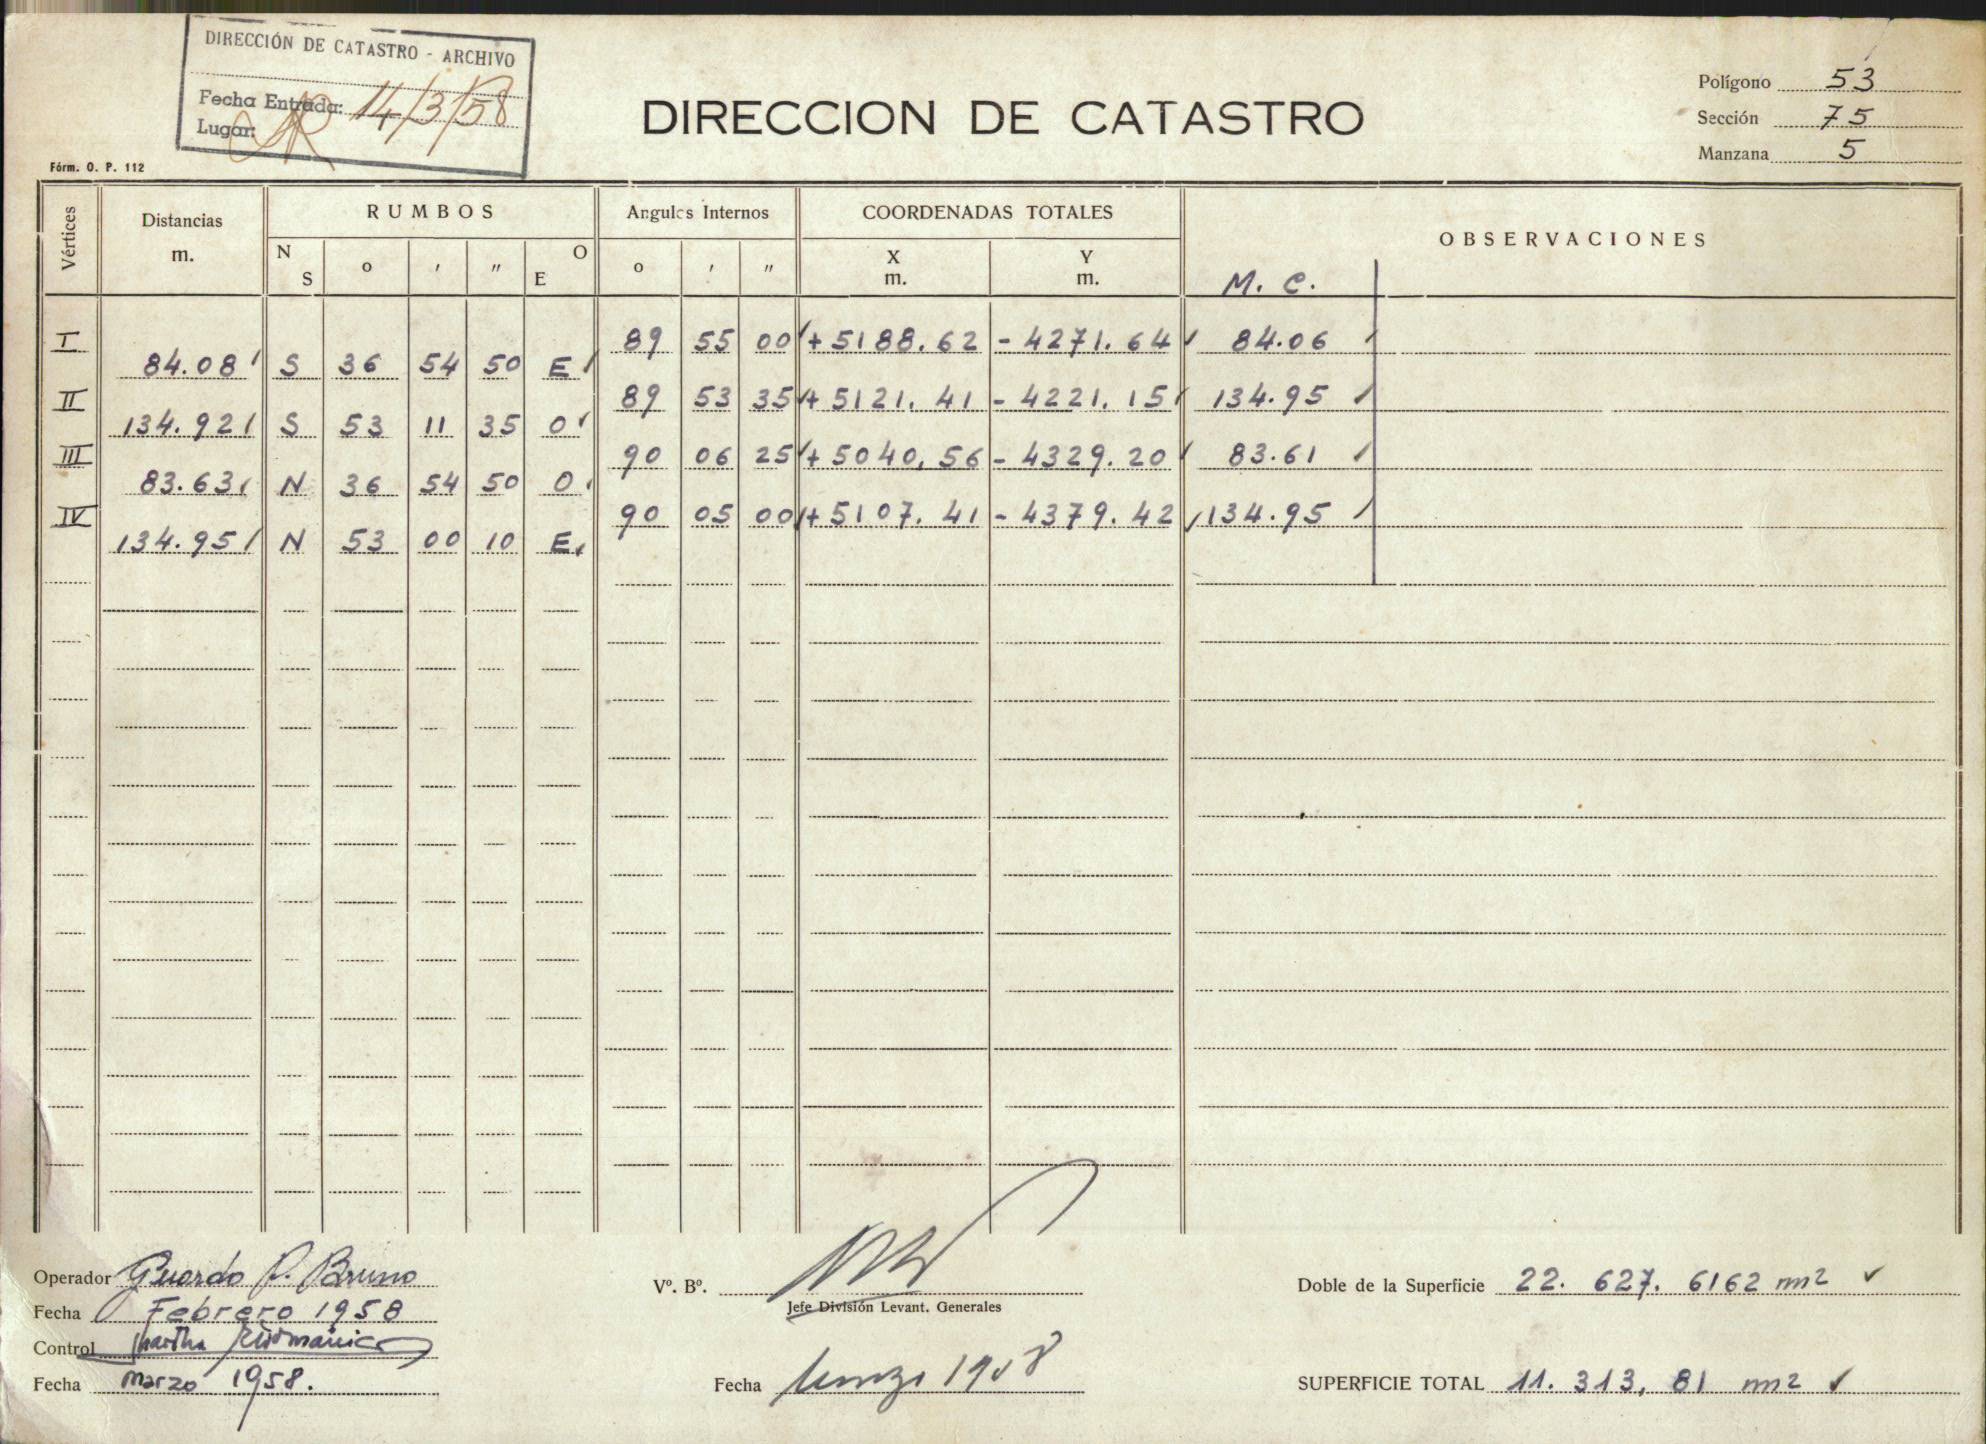 DIRECCIÓN DE CATASTRO - ARCHIVO
Fecha Entrada: 14/3/58
Lugar:
Fórm. O. P. 112
DIRECCION DE CATASTRO
Polígono 53
Sección 75
Manzana 5
Vértices Distancias m. RUMBOS Angulos Internos COORDENADAS TOTALES OBSERVACIONES
N S o ' " O E o ' " X m. Y m. M. C.
I 89 55 00 + 5188.62 - 4271.64 84.06
84.08 S 36 54 50 E
II 89 53 35 + 5121.41 - 4221.15 134.95
134.92 S 53 11 35 O
III 90 06 25 + 5040.56 - 4329.20 83.61
83.63 N 36 54 50 O
IV 90 05 00 + 5107.41 - 4379.42 134.95
134.95 N 53 00 10 E
Operador P. Bruno
Fecha Febrero 1958
Control Martha
Fecha marzo 1958.
Vº. Bº.
Jefe División Levant. Generales
Fecha 1958
Doble de la Superficie 22. 627. 6162 m2
SUPERFICIE TOTAL 11. 313. 81 m2